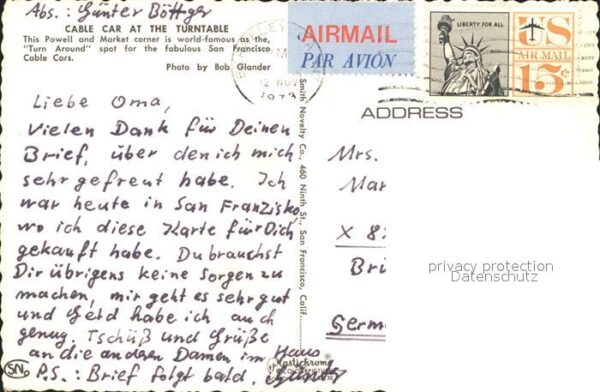 Abs.: Günter Böttger
CABLE CAR AT THE TURNTABLE
This Powell and Market corner is world-famous as the,
"Turn Around" spot for the fabulous San Francisco
Cable Cars.
Photo by Bob Glander
Liebe Oma,
Vielen Dank für Deinen
Brief, über den ich mich
sehr gefreut habe. Ich
war heute in San Franzisko
wo ich diese Karte für Dich
gekauft habe. Du brauchst
Dir übrigens keine Sorgen zu
machen, mir geht es sehr gut
und Geld habe ich auch
genug. Tschüß und Grüße
an die anderen Damen im Haus
P.S.: Brief folgt bald. Günter
SN
Plastichrome
Smith Novelty Co., 460 Ninth St., San Francisco, Calif.
AIRMAIL
PAR AVION
12 NOV
1973
LIBERTY FOR ALL
US
AIR MAIL
15¢
ADDRESS
Mrs.
Mar
X 8
Brü
Germ
privacy protection
Datenschutz